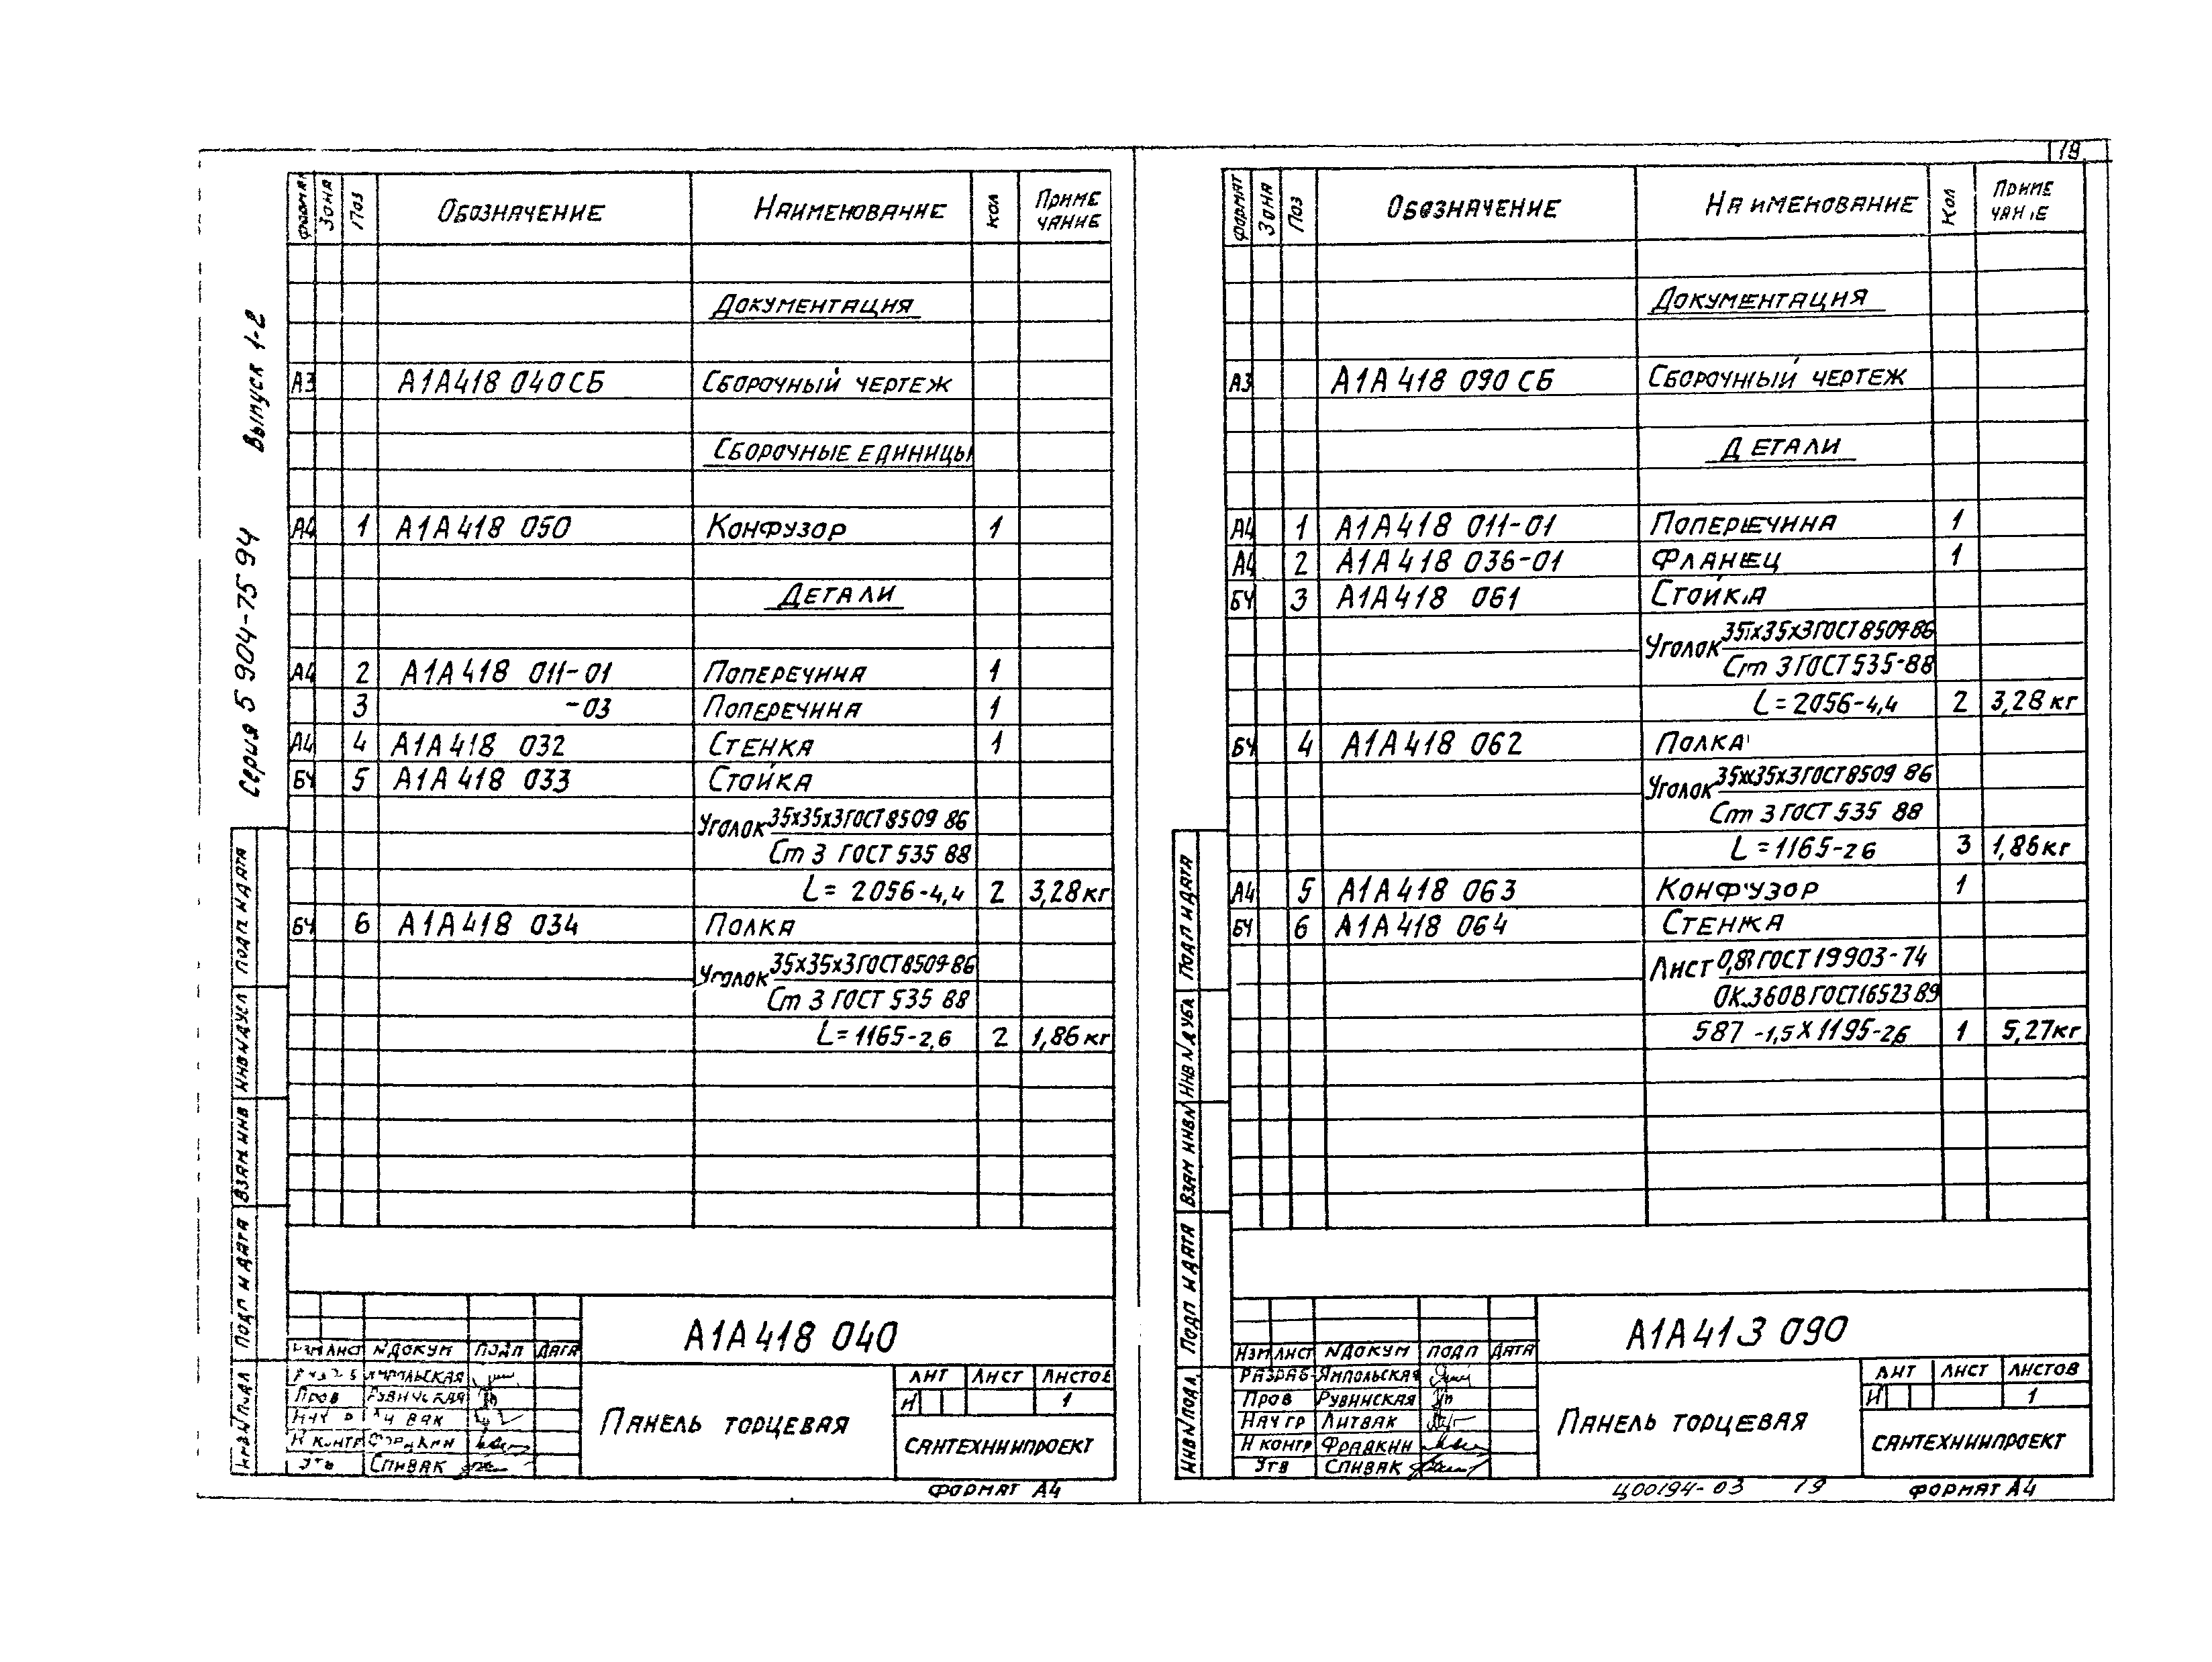 19
Серия 5 904-75 94 Выпуск 1-2
Формат Зона Поз Обозначение Наименование Кол Приме
чание
Документация
А3 А1А418 040 СБ Сборочный чертеж
Сборочные единицы
А4 1 А1А418 050 Конфузор 1
Детали
А4 2 А1А418 011-01 Поперечина 1
3 -03 Поперечина 1
А4 4 А1А418 032 Стенка 1
БЧ 5 А1А418 033 Стойка
Уголок 35х35х3 ГОСТ 8509 86
Ст 3 ГОСТ 535 88
L= 2056-4,4 2 3,28 кг
БЧ 6 А1А418 034 Полка
Уголок 35х35х3 ГОСТ 8509-86
Ст 3 ГОСТ 535 88
L=1165-2,6 2 1,86 кг
Подп и дата
Инв N дубл
Взам инв
Подп и дата
Инв N подл
А1А418 040
Изм Лист N докум Подп Дата
Ямпольская
Пров Рувинская
Н контр Фрадкин
Утв Спивак
Панель торцевая
Лит Лист Листов
И 1
Сантехниипроект
Формат А4
Формат Зона Поз Обозначение Наименование Кол Приме
чание
Документация
А3 А1А418 090 СБ Сборочный чертеж
Детали
А4 1 А1А418 011-01 Поперечина 1
А4 2 А1А418 036-01 Фланец 1
БЧ 3 А1А418 061 Стойка
Уголок 35х35х3 ГОСТ 8509-86
Ст 3 ГОСТ 535-88
L=2056-4,4 2 3,28 кг
БЧ 4 А1А418 062 Полка
Уголок 35х35х3 ГОСТ 8509 86
Ст 3 ГОСТ 535 88
L=1165-26 3 1,86 кг
А4 5 А1А418 063 Конфузор 1
БЧ 6 А1А418 064 Стенка
Лист 0,8 ГОСТ 19903-74
ОК.360В ГОСТ 16523 89
587 -1,5 х 1195-2,6 1 5,27 кг
Подп и дата
Инв N дубл
Взам инв N
Подп и дата
Инв N подл
А1А413 090
Изм Лист N докум Подп Дата
Разраб Ямпольская
Пров Рувинская
Нач гр Литвак
Н контр Фрадкин
Утв Спивак
Панель торцевая
Лит Лист Листов
И 1
Сантехниипроект
Ц00194-03 19 Формат А4